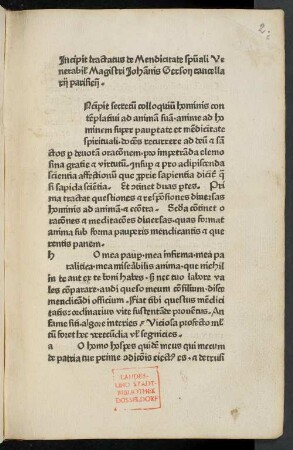 2
Incipit tractatus de Mendicitate spūali Ve
nerabil' Magistri Johānis Gerson cancella
rij parisieñ.
Ncipit secretū colloquiū hominis con
tēplatiui ad animā suā. anime ad ho
minem super paupertate et mēdicitate
spirituali. docēs recurrere ad deū & sā
ctos per deuotā oracōnem. pro impetrāda elemo
sina gratie et virtutū. insuper pro adipiscenda
scientia affectionū que proprie sapientia dicit' q̄
si sapida scīētia. Et otinet duas ptes. Pri
ma tractat questiones & respōsiones diuersas
hominis ad animā & econtra. Seda cōtinet o
racōnes & meditacōes diuersas. quas format
anima sub forma pauperis mendicantis & que
rentis panem.
h O mea paupercula mea infirma mea pa
ralitica mea miserabilis anima. que nichil
in te aut ex te boni habes. si nec tuo labore va
les cōparare. audi queso meum cōsilium. disce
mendicādi officium. Fiat tibi questus mēdici
tatis. ordinarius vite sustentāde prouētus. An
fame siti algore interies? Viciosa profecto ml'
tū foret hec verecūdia vel segnicies.
a O homo hospes quidē meus qui mecum
de patria tue prime odicōis eiectus es. a detrusū
LANDES-
UND STADT-
BIBLIOTHEK
DÜSSELDORF